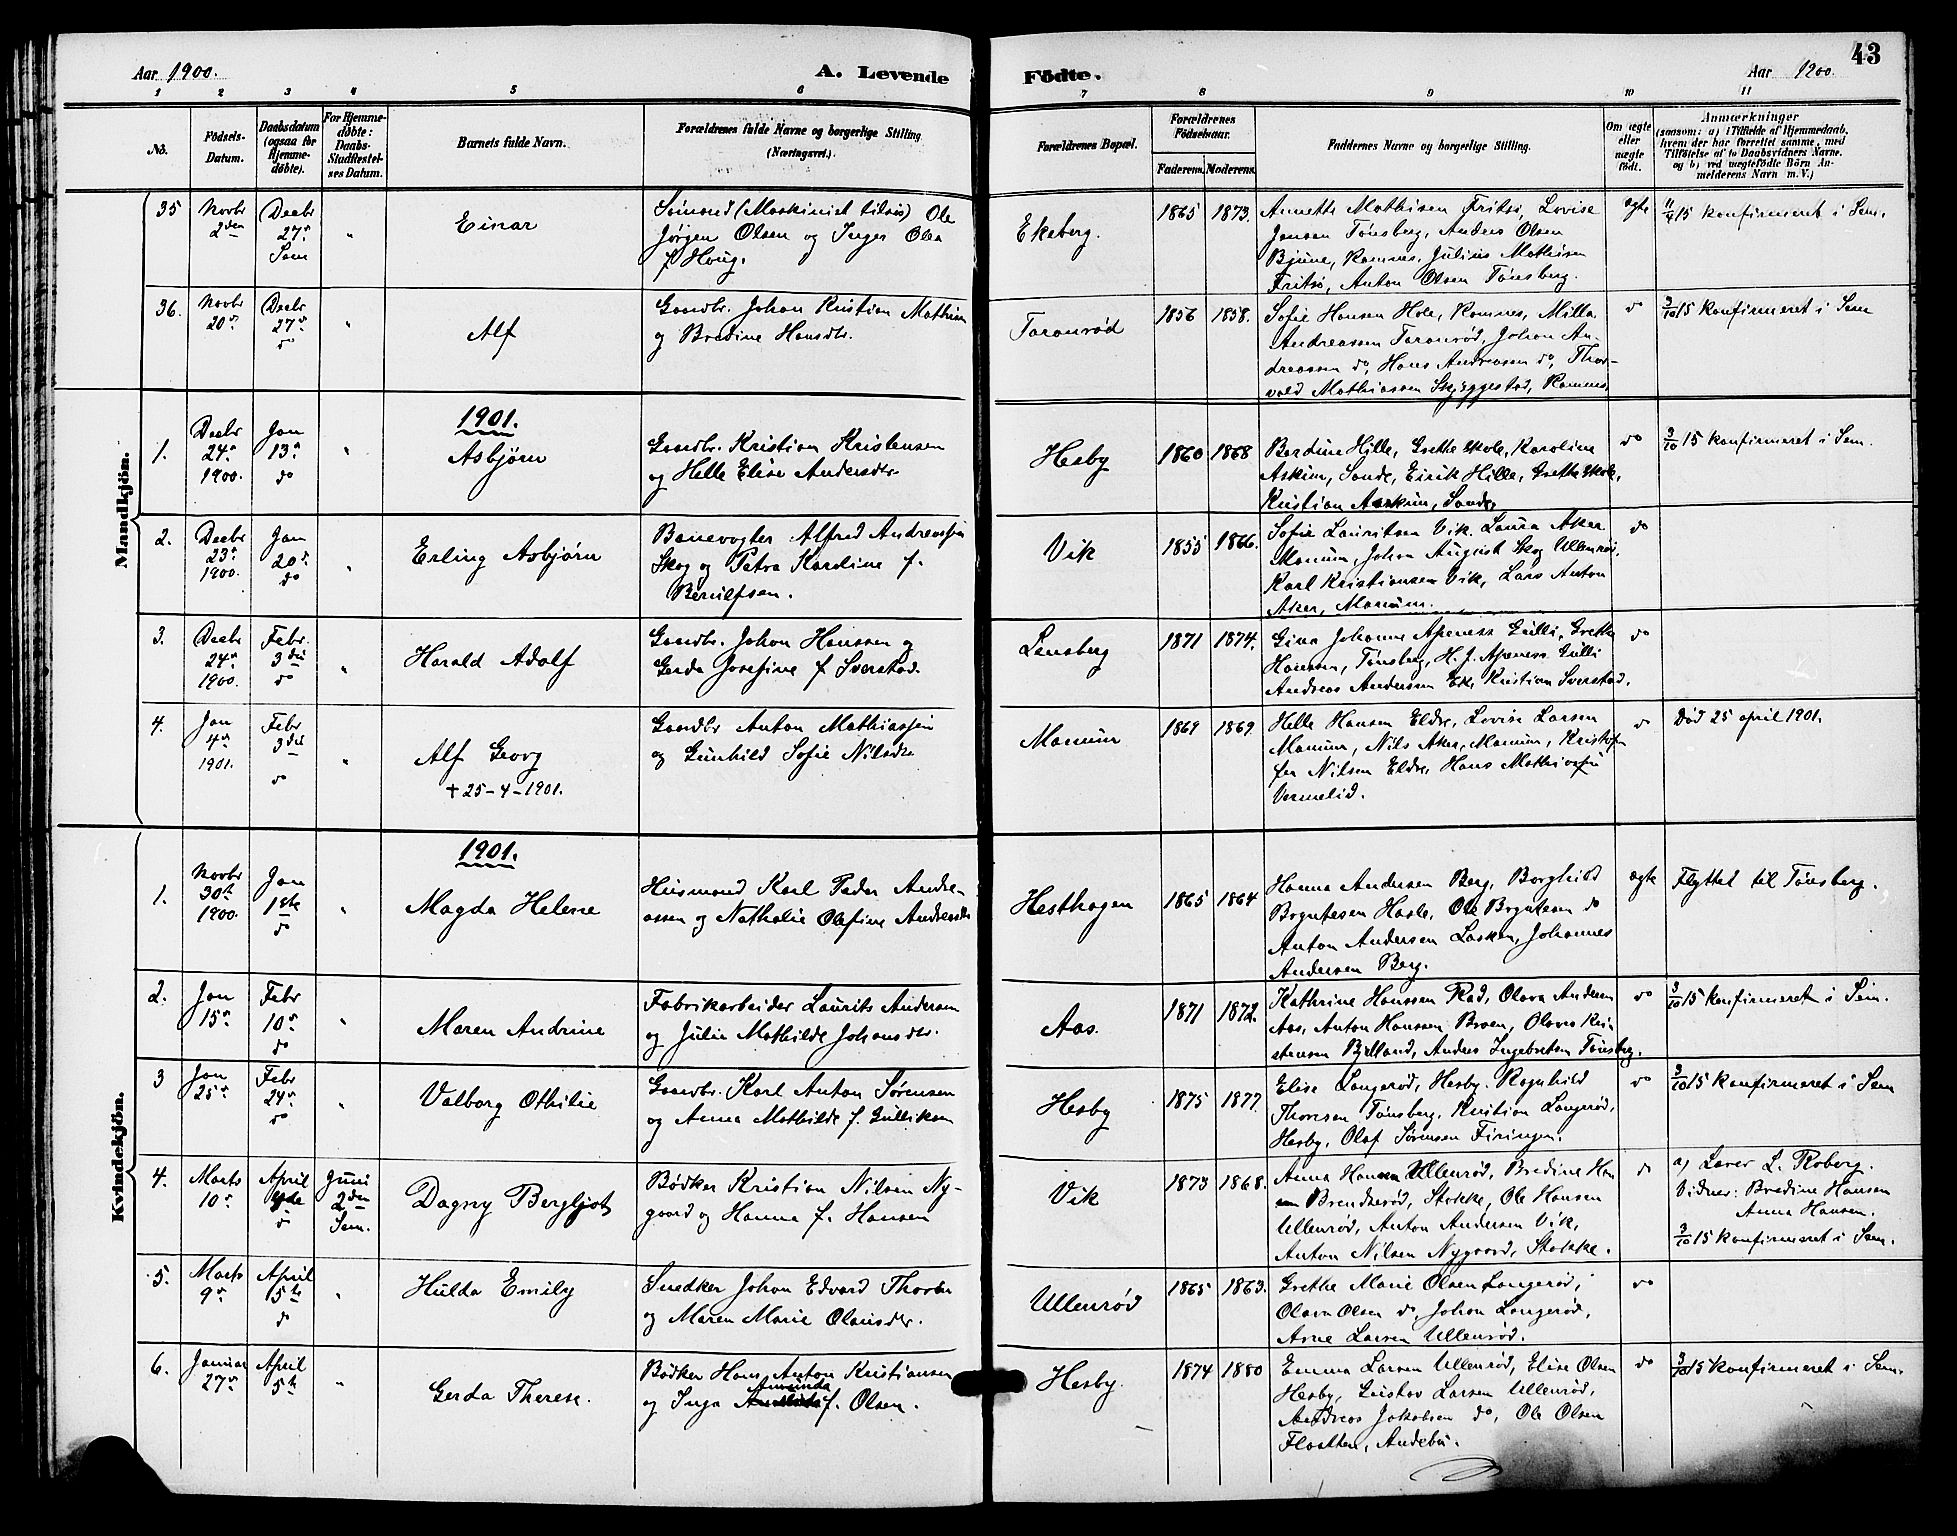 43
Aar 1900.
A. Levende Födte.
Aar 1900.
1 2 3 4 5 6 7 8 9 10 11
No.
Födsels-
Datum.
Daabsdatum
(ogsaa for
Hjemme-
døbte).
For Hjemme-
døbte:
Daabs-
Stadfæstel-
ses Datum.
Barnets fulde Navn.
Forældrenes fulde Navne og borgerlige Stilling.
(Næringsvei.)
Forældrenes Bopæl.
Forældrenes
Födselsaar.
Faderens. Moderens.
Faddernes Navne og borgerlige Stilling.
Om ægte
eller
uægte
födt.
Anmærkninger
(saasom: a) i Tilfælde af Hjemmedaab,
hvem der har forrettet samme, med
Tilföielse af to Daabsvidners Navne.
og b) ved uægtefödte Börn An-
melderens Navn m.V.)
35
Novbr
2den
Decbr
27de
Sem
"
Einar
Sömand (Maskinist tilsös) Ole
Jørgen Olsen og Inger Olea
f. Houg.
Ekeberg.
1865
1873.
Annette Mathisen Fritsö, Lovise
Jensen Tönsberg, Anders Olsen
Bjune, Ramnes, Julius Mathisen
Fritsö, Anton Olsen Tønsberg.
ægte
11/4 15 konfirmeret i Sem.
36.
Novbr
20de
Decbr
27de
do
"
Alf
Gaardbr. Johan Kristian Mathisen
og Bredine Hansdtr.
Taranrød
1856
1858.
Sofie Hansen Hole, Ramnes, Milla
Andreassen Taranrød, Johan An-
dreassen do, Hans Andreassen do, Thor-
vald Mathiassen Skjeggestad, Ramnes
do
3/10 15 konfirmeret i Sem
Mandkjön.
1901.
1.
Decbr
24de
1900.
Jan
13de
do
"
Asbjørn
Gaardbr. Kristian Kristensen
og Helle Elise Andersdtr
Hesby
1860
1868
Berdine Hille, Grethe Skole, Karoline
Askim, Sande, Eirik Hille, Grethe Skole,
Kristian Askim, Sande.
do
3/10 15 konfirmeret i Sem.
2.
Decbr
23de
1900.
Jan
20de
do
"
Erling Asbjørn
Banevogter Alfred Andreassen
Skog og Petra Karoline f.
Berulfsen.
Vik
1855
1866.
Sofie Lauritsen Vik. Laura Aker
Manum, Johan August Skog Ullenrød,
Karl Kristiansen Vik, Lars Anton
Aker, Manum.
do
3.
Decbr
24de
1900.
Febr.
3die
do
"
Harald Adolf
Gaardbr. Johan Hanssen og
Gerda Josefine f. Sverstad.
Lensberg
1871
1874.
Gina Johanne Apeness Gulli, Grethe
Hanssen, Tønsberg, H. J. Apeness Gulli
Andreas Andersen Eke, Kristian Sverstad.
do
4.
Jan
4de
1901.
Febr
3die
do
"
Alf Georg
+ 25-4-1901.
Gaardbr Anton Mathiassen
og Gunhild Sofie Nilsdtr
Manum
1869
1869.
Helle Hansen Eldre, Lovise Larsen
Manum, Nils Aker, Manum, Kristof-
fer Nilsen Eldre, Hans Mathiassen
Vermelid.
do
Död 25 april 1901.
Kvindekjön.
1901.
1.
Novbr
30te
1900
Jan
1ste
do
"
Magda Helene
Husmand Karl Peder Andre-
assen og Nathalie Olefine Andreasdtr
Hesthagen
1865
1864
Hanna Andersen Berg, Borghild
Bryntesen Hasle, Ole Bryntesen do
Anton Andersen Lasken, Johannes
Andersen Berg.
ægte
Flyttet til Tönsberg.
2.
Jan
15de
Febr
10de
do
"
Maren Andrine
Fabrikarbeider Laurits Andersen
og Julie Mathilde Johansdtr.
Aas.
1871
1872.
Kathrine Hanssen Rad, Olava Andersen
Aas, Anton Hanssen Broen, Olaves Kri-
stensen Bjelland, Anders Ingebretsen Tönsberg.
do
3/10 15 konfirmeret i Sem.
3
Jan
25de
Febr
24de
do
"
Valborg Othilie
Gaardbr. Karl Anton Sørensen
og Anna Mathilde f. Gulliksen
Hesby
1875
1877.
Elise Langerød, Hesby. Ragnhild
Thoresen Tønsberg, Kristian Langerød,
Hesby, Olaf Sørensen Firingen.
do
3/10 15 konfirmeret i Sem
4.
Marts
10de
April
4de
do
Juni
2den
Sem.
Dagny Bergljot
Bødker Kristian Nilsen Ny-
gaard og Hanna f. Hansen
Vik
1873
1868.
Anna Hansen Ullenrød, Bredine Han-
sen Brendsrød, Stokke, Ole Hansen
Ullenrød, Anton Andersen Vik,
Anton Nilsen Nygaard, Stokke.
do
a) Lærer L. Roberg.
Vidner: Bredine Hansen
Anna Hansen.
3/10 15 konfirmeret i Sem.
5.
Marts
9de
April
5te
do
"
Hulda Emily
Snedker Johan Edvard
og Maren Marie Olausdtr.
Ullenrød
1865
1863.
Grethe Marie Olsen Langerød,
Olava Olsen do, Johan Langerød,
Arne Larsen Ullenrød.
do
6.
Januar
27de
April
5te
"
Gerda Therese.
Bødker Hans Anton Kristiansen
Amunda
og Inga f. Olsen.
Hesby.
1874
1880
Emma Larsen Ullenrød, Elise Olsen
Hesby, Gustav Larsen Ullenrød,
Andreas Jakobsen do, Ole Olsen
Flaatten, Andebu.
do
3/10 15 konfirmeret i Sem.